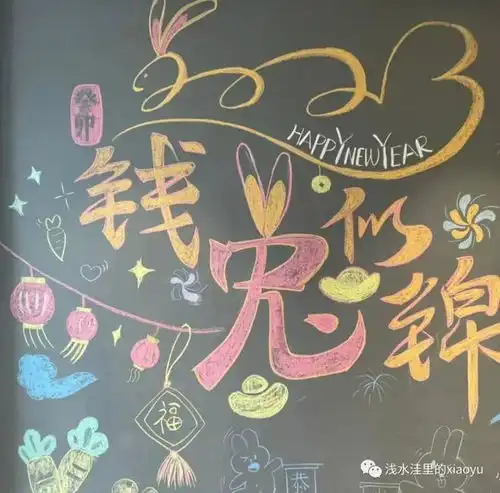 2023
癸卯
HAPPY NEW YEAR
钱兔似锦
福
恭
浅水洼里的xiaoyu